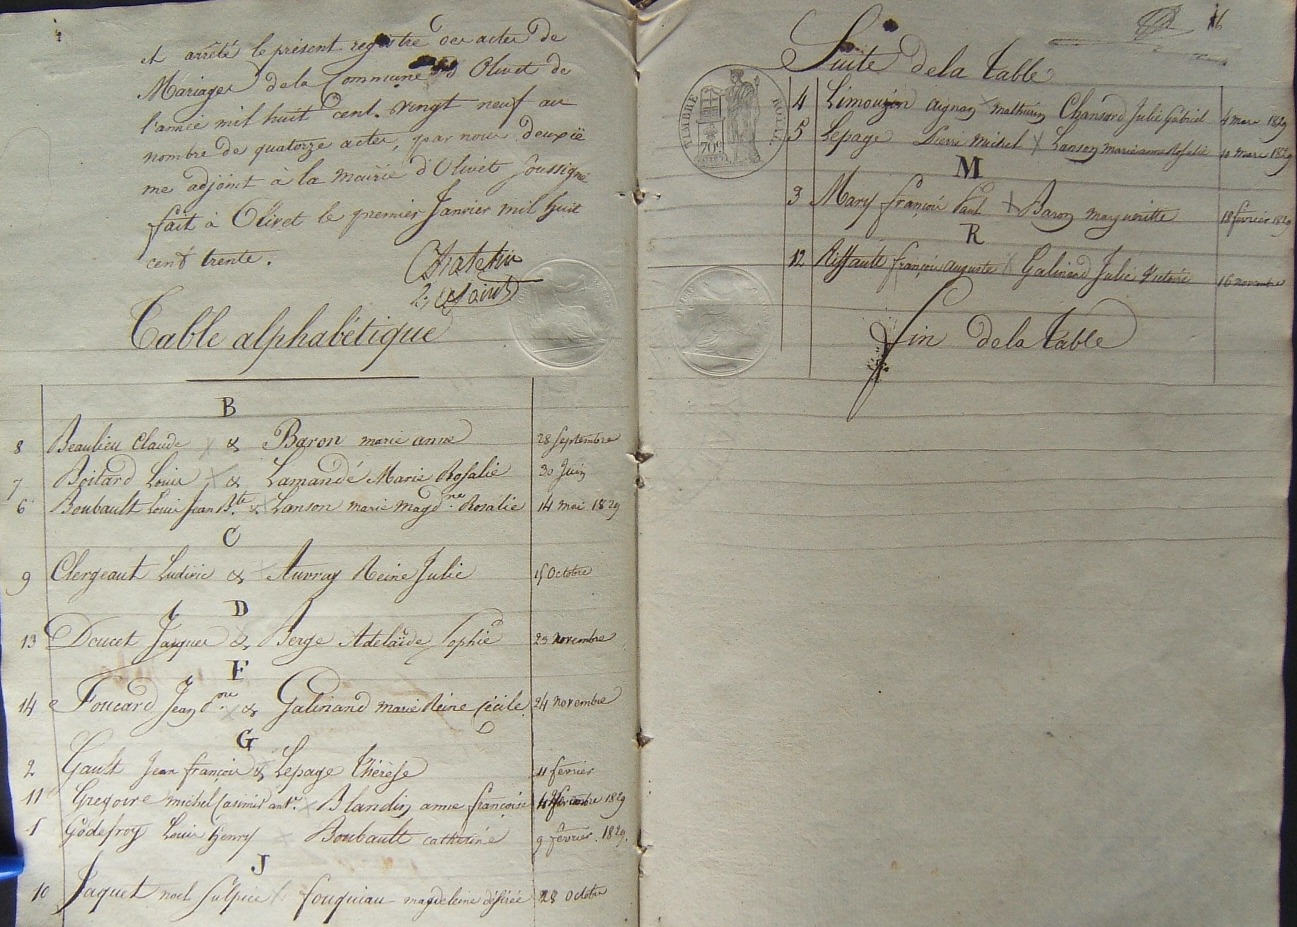 et arrêté le présent registre des actes de
Mariages de la Commune d'Olivet de
l'année mil huit cent vingt neuf au
nombre de quatorze actes, par nous deuxiè
me adjoint à la mairie d'Olivet Soussigné
fait à Olivet le premier Janvier mil huit
cent trente.
Table alphabétique
B
8 Beaulieu Claude & Baron marie anne 28 Septembre
7 Boitard Louis & Lamandé Marie Rosalie 30 Juin
6 Boubault Louis Jean Bte & Lanson marie magdne Rosalie 14 mai 1829
C
9 Clergeaut Ludivic & Auvray Reine Julie 15 Octobre
D
13 Doucet Jacques & Berge Adelaïde Sophie 23 novembre
F
14 Foucard Jean & Galinand marie Reine Cécile 24 novembre
G
2 Gault Jean françois & Lepage Thérèse 11 février
11 Gregoire michel Casimir ant. Blandin anne françoise 1829
1 Godefroy Louis Henry Boubault catherine 9 février. 1829.
J
10 Jaquet noel Sulpice fouquiau magdeleine désirée 28 Octobre
16
Suite de la table
TIMBRE ROYAL
709
4 Limousin aignan mathurin Chansard Julie Gabriel 4 mars 1829
5 Lepage Pierre Michel X Lanson marie anne Rosalie 10 mars 1829
M
3 Mary françois Paul X Baron margueritte 18 février 1829
R
12 Riffault françois auguste X Galinand Julie Victoire 16 novembre
fin de la table